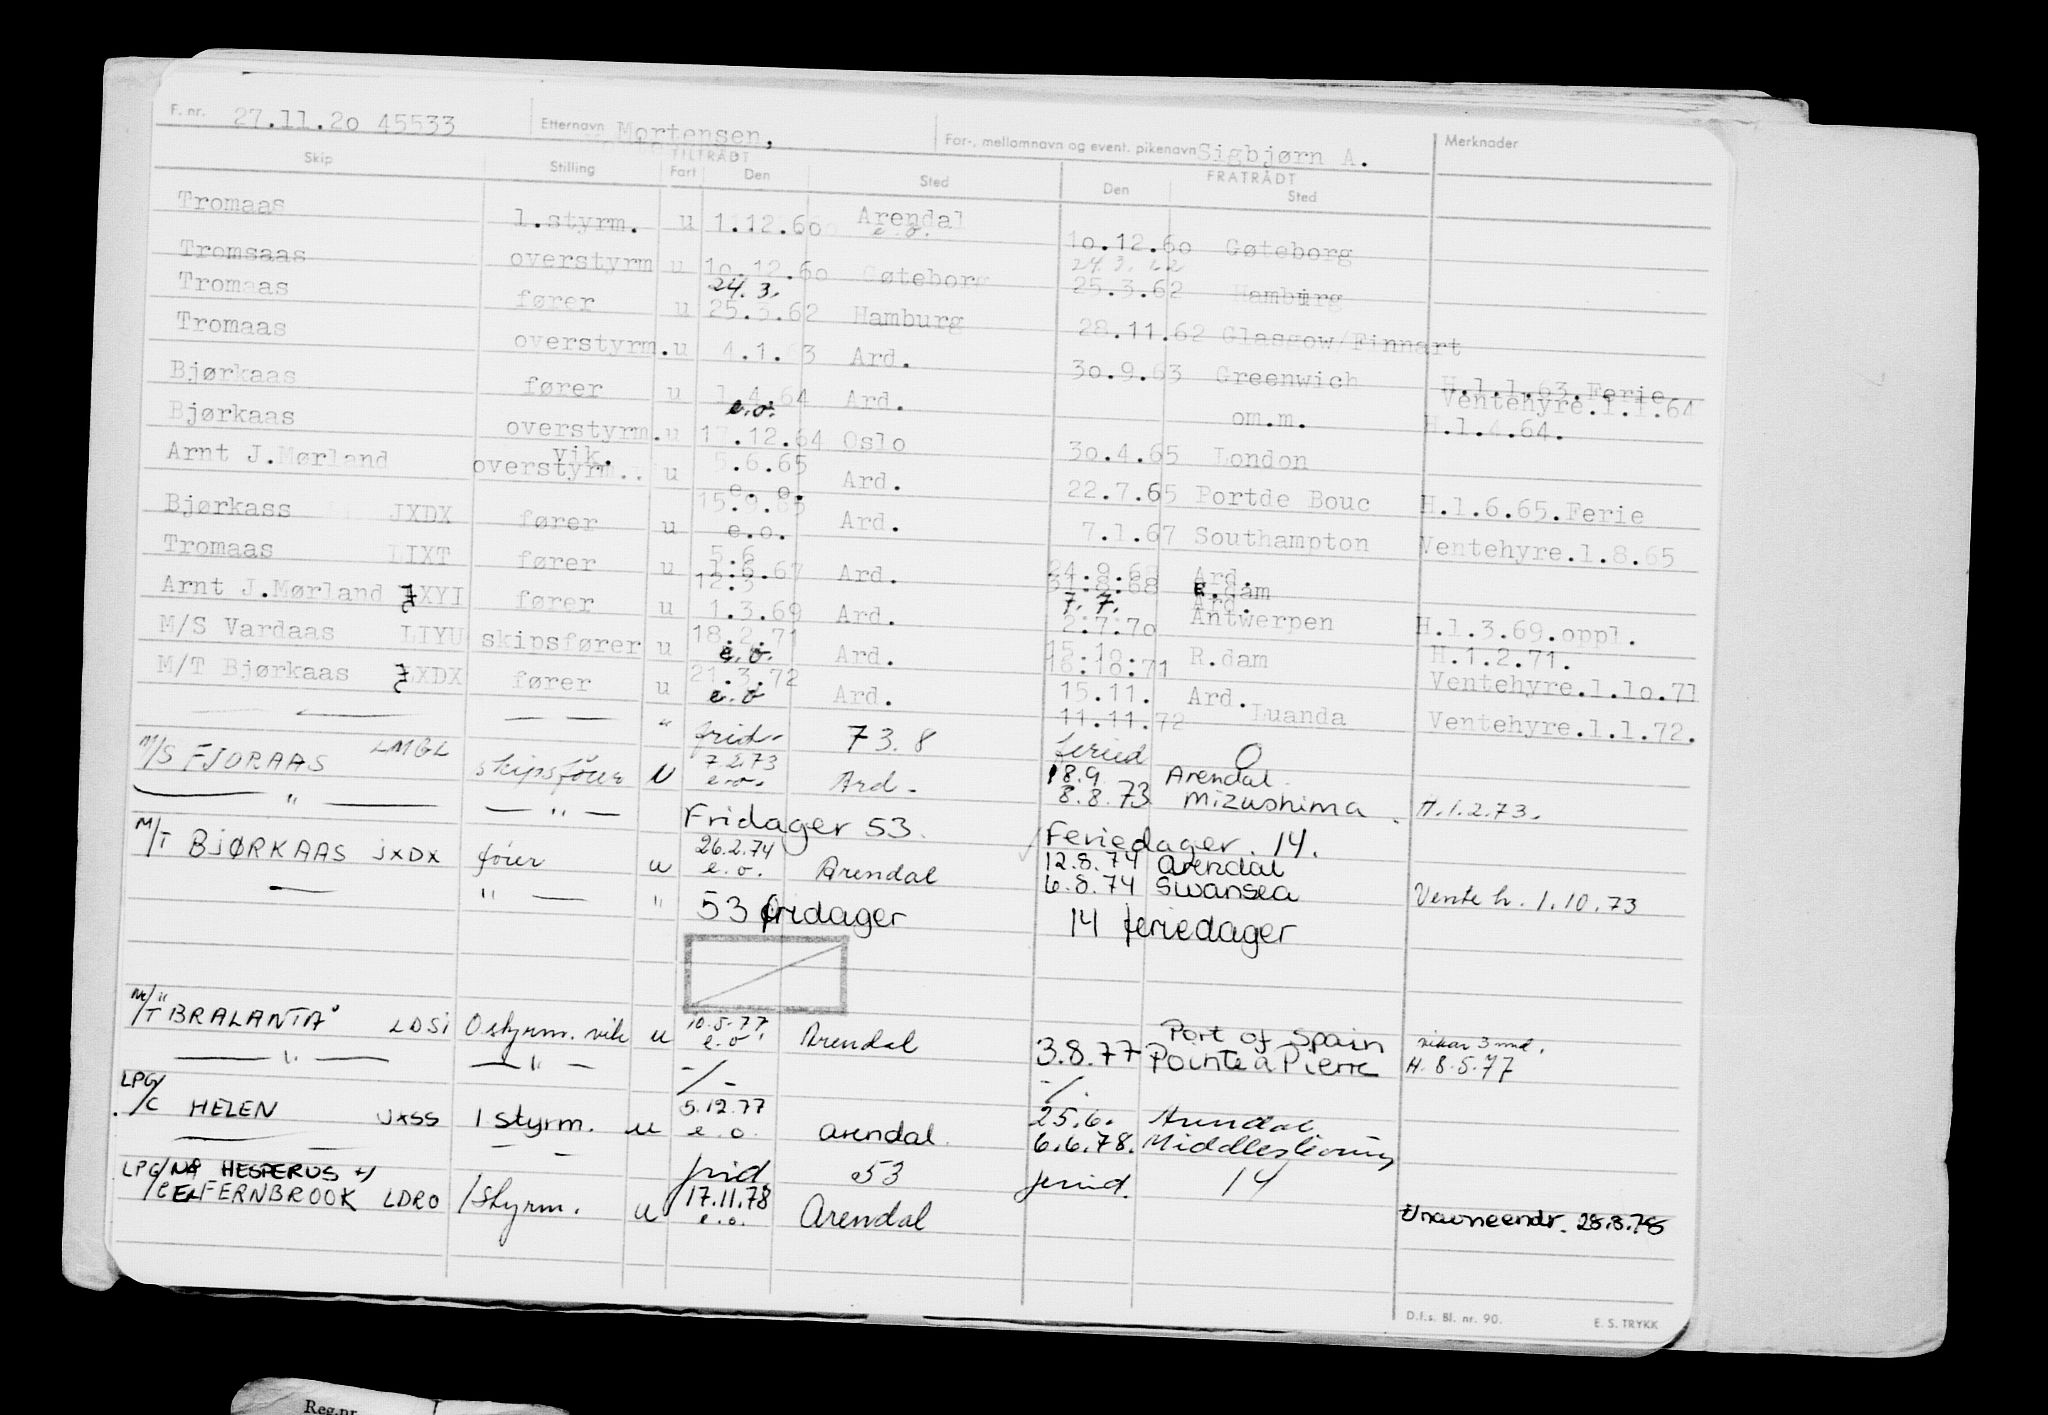 F. nr. 27.11.2o 45533 Etternavn Mortensen, For-, mellomnavn og event. pikenavn Sigbjørn A. Merknader
Skip Stilling TILTRÅDT Fart Den Sted FRATRÅDT Den Sted
Tromaas 1.styrm. u 1.12.6o Arendal e.o. 1o.12.6o Gøteborg
Tromsaas overstyrm u 1o.12.6o Gøteborg 24.3.62 25.3.62 Hamburg
Tromaas fører u 24.3. 25.3.62 Hamburg 28.11.62 Glasgow/Finnart
Tromaas overstyrm. u 4.1.63 Ard. 3o.9.63 Greenwich H.1.1.63.Ferie
Bjørkaas fører u 1.4.64 e.o. Ard. om.m. Ventehyre.1.1.64 H.1.4.64.
Bjørkaas overstyrm. u 17.12.64 Oslo 3o.4.65 London
Arnt J.Mørland vik. overstyrm.. u 5.6.65 e.o. Ard. 22.7.65 Portde Bouc H.1.6.65.Ferie
Bjørkass JXDX fører u 15.9.65 e.o. Ard. 7.1.67 Southampton Ventehyre.1.8.65
Tromaas LIXT fører u 5.6 1.6.67 Ard. 24.9.68 Ard. 31.8.68 R.dam
Arnt J.Mørland JXYI fører u 12.3 1.3.69 Ard. 7.7. Ard. 2.7.7o Antwerpen H.1.3.69.oppl.
M/S Vardaas LIYU skipsfører u 18.2.71 e.o. Ard. 15.10. 18.10.71 R.dam H.1.2.71.
M/T Bjørkaas JXDX fører u 21.3.72 e.o Ard. 15.11. Ard. 11.11.72 Luanda Ventehyre.1.1o.71
— — — " frid. 73.8 feried 0 Ventehyre.1.1.72.
M/S FJORAAS LMGL skipsfører U 7.2.73 e.o. Ard. 18.9 Arendal. 8.8.73 Mizushima H.1.2.73.
— " — — " — Fridager 53. Feriedager. 14.
M/T BJØRKAAS JXDX fører u 26.2.74 e.o. Arendal 12.8.74 Arendal 6.8.74 Swansea Vente h. 1.10.73
— " — " 53 fridager 14 feriedager
M/T "BRALANTA" LDSI O styrm. vik u 10.5.77 e.o. Arendal 3.8.77 Port of Spain Pointe a Pierre vikar 3 mnd. H. 8.5.77
— " — — " — -/- -/-
LPG/C HELEN JXSS 1 styrm. u 5.12.77 e.o. arendal. 25.6. Arendal. 6.6.78.
— — — — frid 53 feried. 14
LPG/C NÅ HESPERUS EX FERNBROOK LDRO 1 styrm. u 17.11.78 e.o. Arendal
D.f.s. Bl. nr. 90. E. S. TRYKK
Reg.nr.